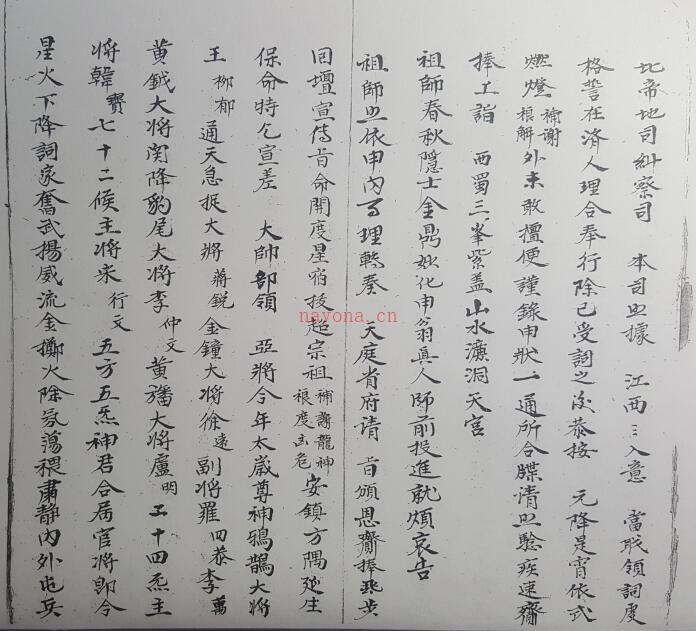 北帝地司糾察司 本司照據 江西三入意 當職領詞虔
格誓在济人理合奉行除已受詞之後恭按 元降是宵依式
燃燈 補謝 根解 外未敢擅便謹錄申狀一通所合牒請照驗疾速齎
捧上詣 西蜀三峯紫盖山水濂洞天宫
祖師春秋隱士金鼎妙化申翁真人師前投進就煩哀告
祖師照依申內事理轉奏 天庭省府請 旨頒恩齎捧飛步
回壇宣傳旨命開度星宿技超宗祖 補謝龍神 根度出危 安鎮方隅延生
保命特乞宣差 大帥部領 亞將今年太歲尊神鴉鵲大將
王 柳郁 通天急捉大將 蔣銳 金鐘大將徐 遠 副將羅 四恭 李 萬
黄鉞大將関降豹尾大將李 仲文 黄旛大將盧 明 二十四炁主
將韓 寶 七十二候主將宋 行文 五方五炁神君合属官將即令
星火下降詞家奮武揚威流金擲火除氛蕩穢肅静內外屯兵
nayona.cn